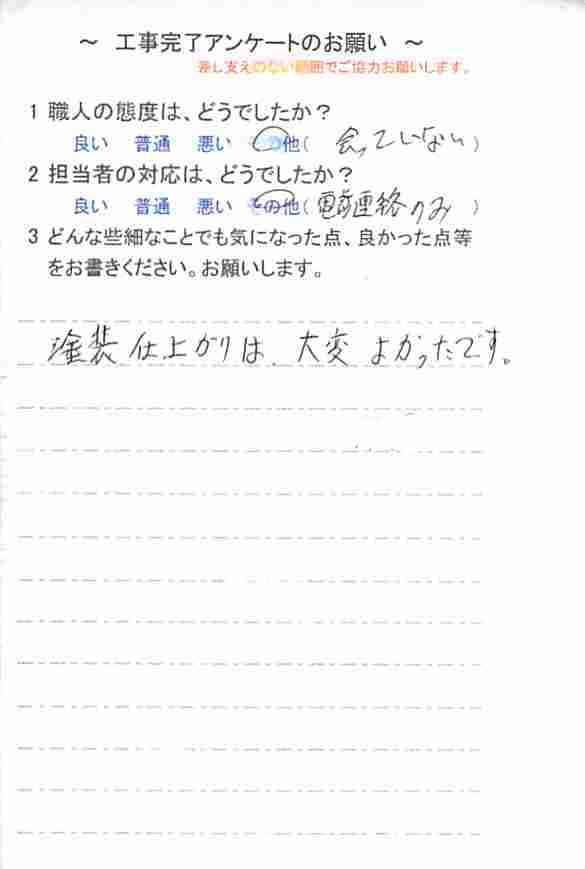 ～ 工事完了アンケートのお願い ～
差し支えのない範囲でご協力お願いします。
1 職人の態度は、どうでしたか？
良い 普通 悪い その他( 会っていない )
2 担当者の対応は、どうでしたか？
良い 普通 悪い その他( 電話連絡のみ )
3 どんな些細なことでも気になった点、良かった点等
をお書きください。お願いします。
塗装仕上がりは、大変よかったです。